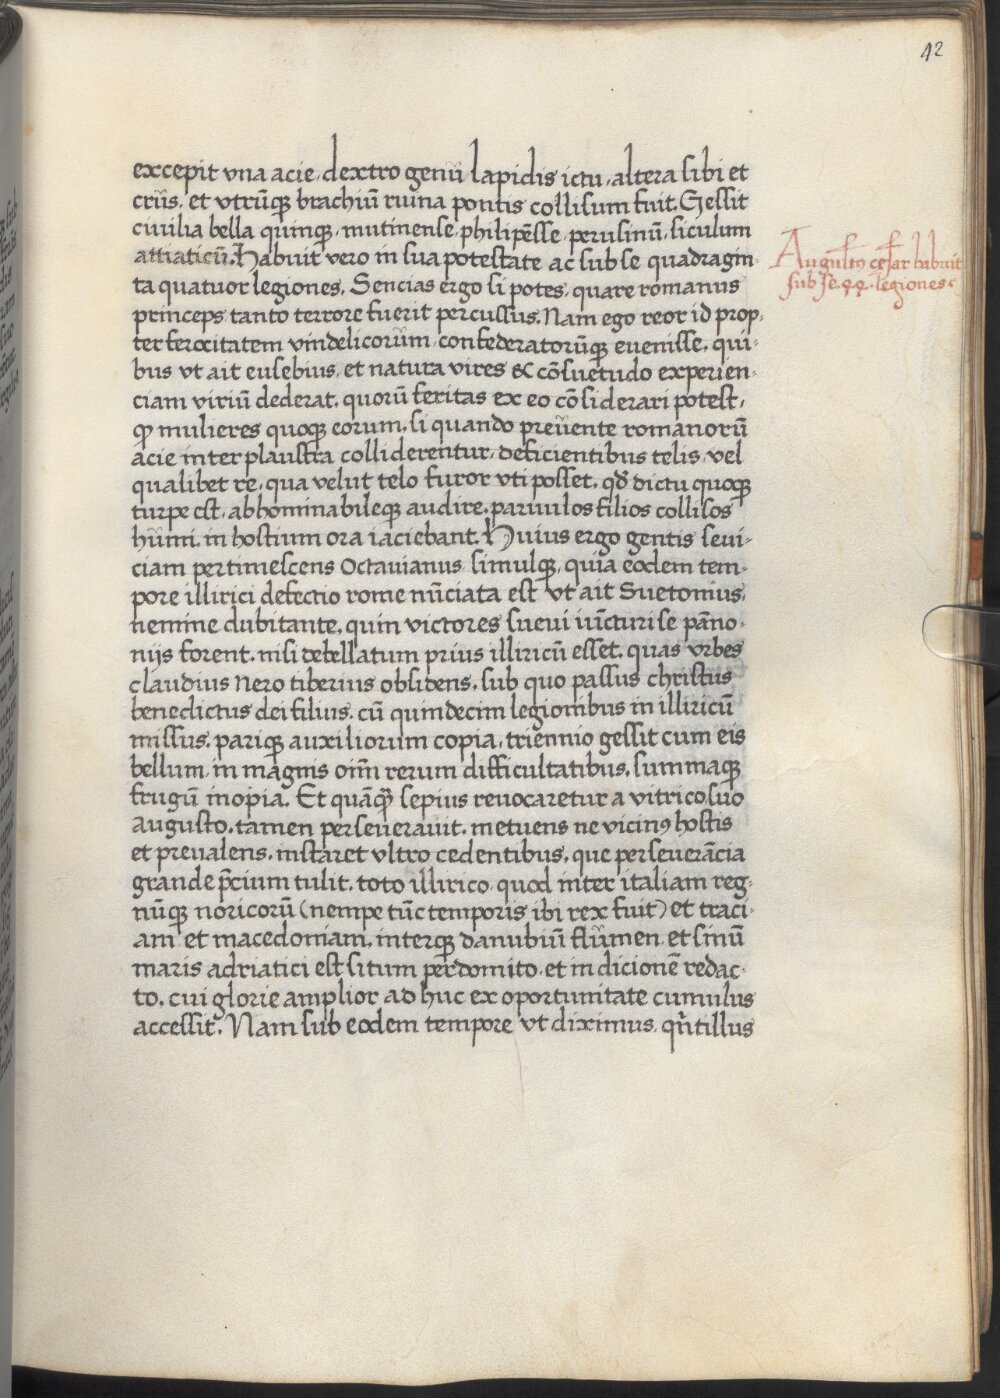 42
excepit vna acie, dextro genu lapidis ictu, altera sibi et
crus, et vtrūqꝫ brachiū ruina pontis collisum fuit. Gessit
ciuilia bella quinqꝫ, mutinense, philipēse, perusinū, siculum
attiaticū. Habuit vero in sua potestate ac sub se quadragin-
ta quatuor legiones. Sencias ergo si potes, quare romanus
princeps tanto terrore fuerit percussus. Nam ego reor id prop-
ter ferocitatem vindelicorum, confederatorūqꝫ euenisse, qui-
bus vt ait eusebius, et natura vires & cōsuetudo experien-
ciam viriū dederat, quorū feritas ex eo cōsiderari potest,
ꝙ mulieres quoqꝫ eorum, si quando preuente romanorū
acie inter plaustra colliderentur, deficientibus telis, vel
qualibet re, qua velut telo furor vti posset, qd̄ dictu quoqꝫ
turpe est, abhominabileqꝫ audire, paruulos filios collisos
humi, in hostium ora iaciebant. Huius ergo gentis seui-
ciam pertimescens Octauianus, simulqꝫ, quia eodem tem-
pore illirici defectio rome nūciata est, vt ait Suetonius,
nemine dubitante, quin victores sueui iūcturi se pāno-
niis forent, nisi debellatum prius illiricū esset, quas vrbes
claudius nero tiberius obsidens, sub quo passus christus
benedictus dei filius, cū quindecim legionibus in illiricū
missus, pariqꝫ auxiliorum copia, triennio gessit cum eis
bellum, in magnis om̄ rerum difficultatibus, summaqꝫ
frugū inopia. Et quāqꝫ sepius reuocaretur a vitrico suo
augusto, tamen perseuerauit, metuens ne vicinꝰ hostis
et preualens, instaret vltro cedentibus, que perseuerācia
grande p̄cium tulit, toto illirico, quod inter italiam reg-
nūqꝫ noricorū (nempe tūc temporis ibi rex fuit) et traci-
am et macedoniam, interqꝫ danubiū flumen, et sinū
maris adriatici est situm perdomito, et in dicionē redac-
to, cui glorie amplior ad huc ex oportunitate cumulus
accessit. Nam sub eodem tempore vt diximus, qn̄tillus
Augustꝰ cesar habuit
sub se 44 legiones